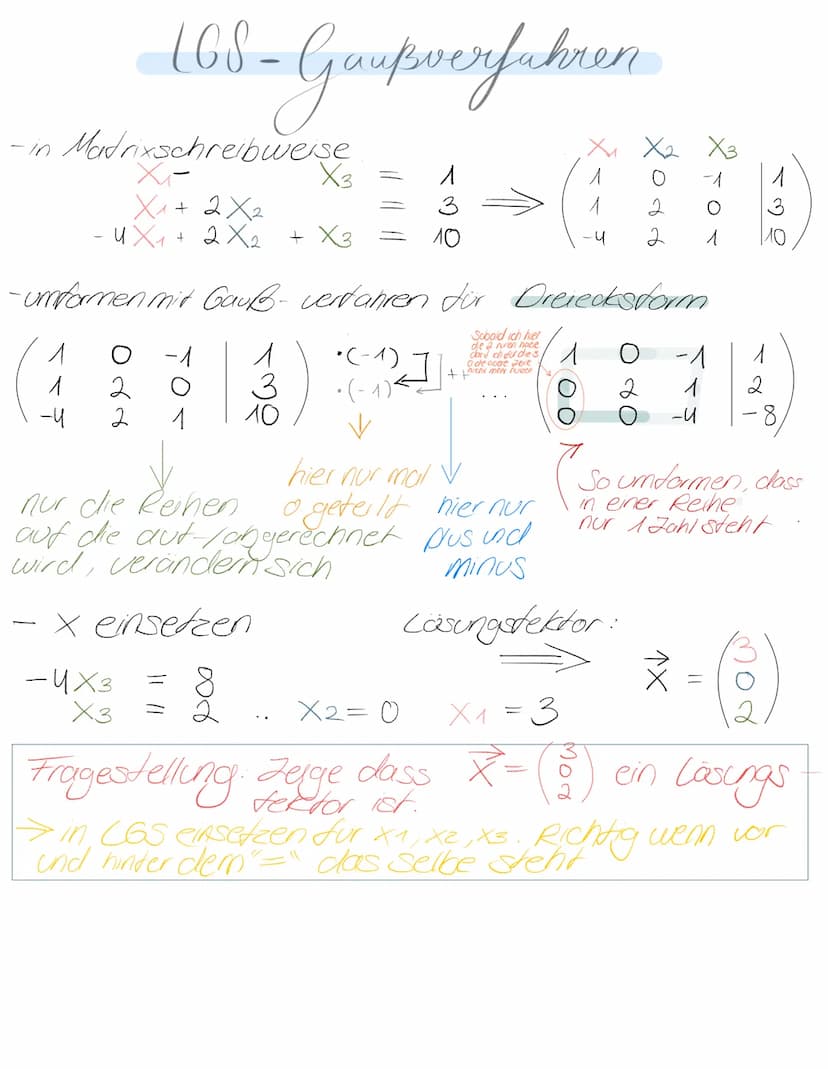 LGS - Gaußverfahren
- in Matrixschreibweise
X₁ - X₃ = 1
X₁ + 2X₂ = 3
-4X₁ + 2X₂ + X₃ = 10
⟹
X₁ X₂ X₃
1 0 -1 | 1
1 2 0 | 3
-4 2 1 | 10
- umformen mit Gauß-verfahren für Dreiecksform
1 0 -1 | 1
1 2 0 | 3
-4 2 1 | 10
·(-1)
·(-1)
++
Sobald ich hier
die 2 nullen habe
darf ich die
...
1 0 -1 | 1
0 2 1 | 2
0 0 -4 | -8
nur die Reihen
auf die auf-/abgerechnet
wird, verändern sich
hier nur mal
o geteilt
hier nur
plus und
minus
So umformen, dass
in einer Reihe
nur 1 Zahl steht
- X einsetzen
-4X₃ = 8
X₃ = 2 .. X₂ = 0 X₁ = 3
Lösungsfektor:
⟹ x⃗ = (3 0 2)
Fragestellung: Zeige dass x⃗ = (3 0 2) ein Lösungs-
fektor ist.
→ in LGS einsetzen für x1, x2, x3. Richtig wenn vor
und hinter dem "=" das selbe steht